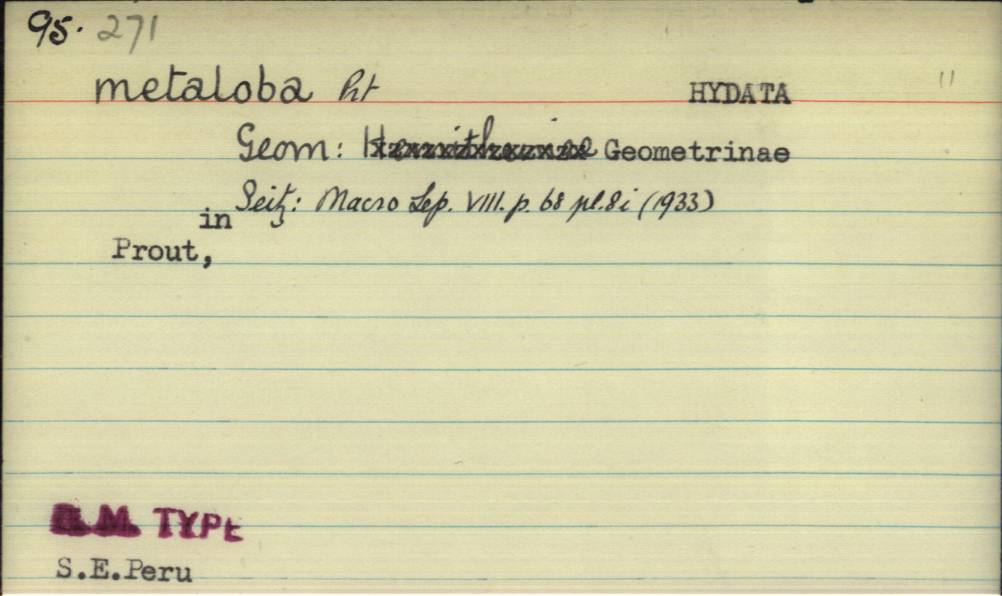 95. 271
metaloba Prt HYDATA "
Geom: Hemitheinae Geometrinae
in Seitz: Macro Lep. VIII. p. 68 pl. 8i (1933)
Prout,
B.M. TYPE
S.E.Peru